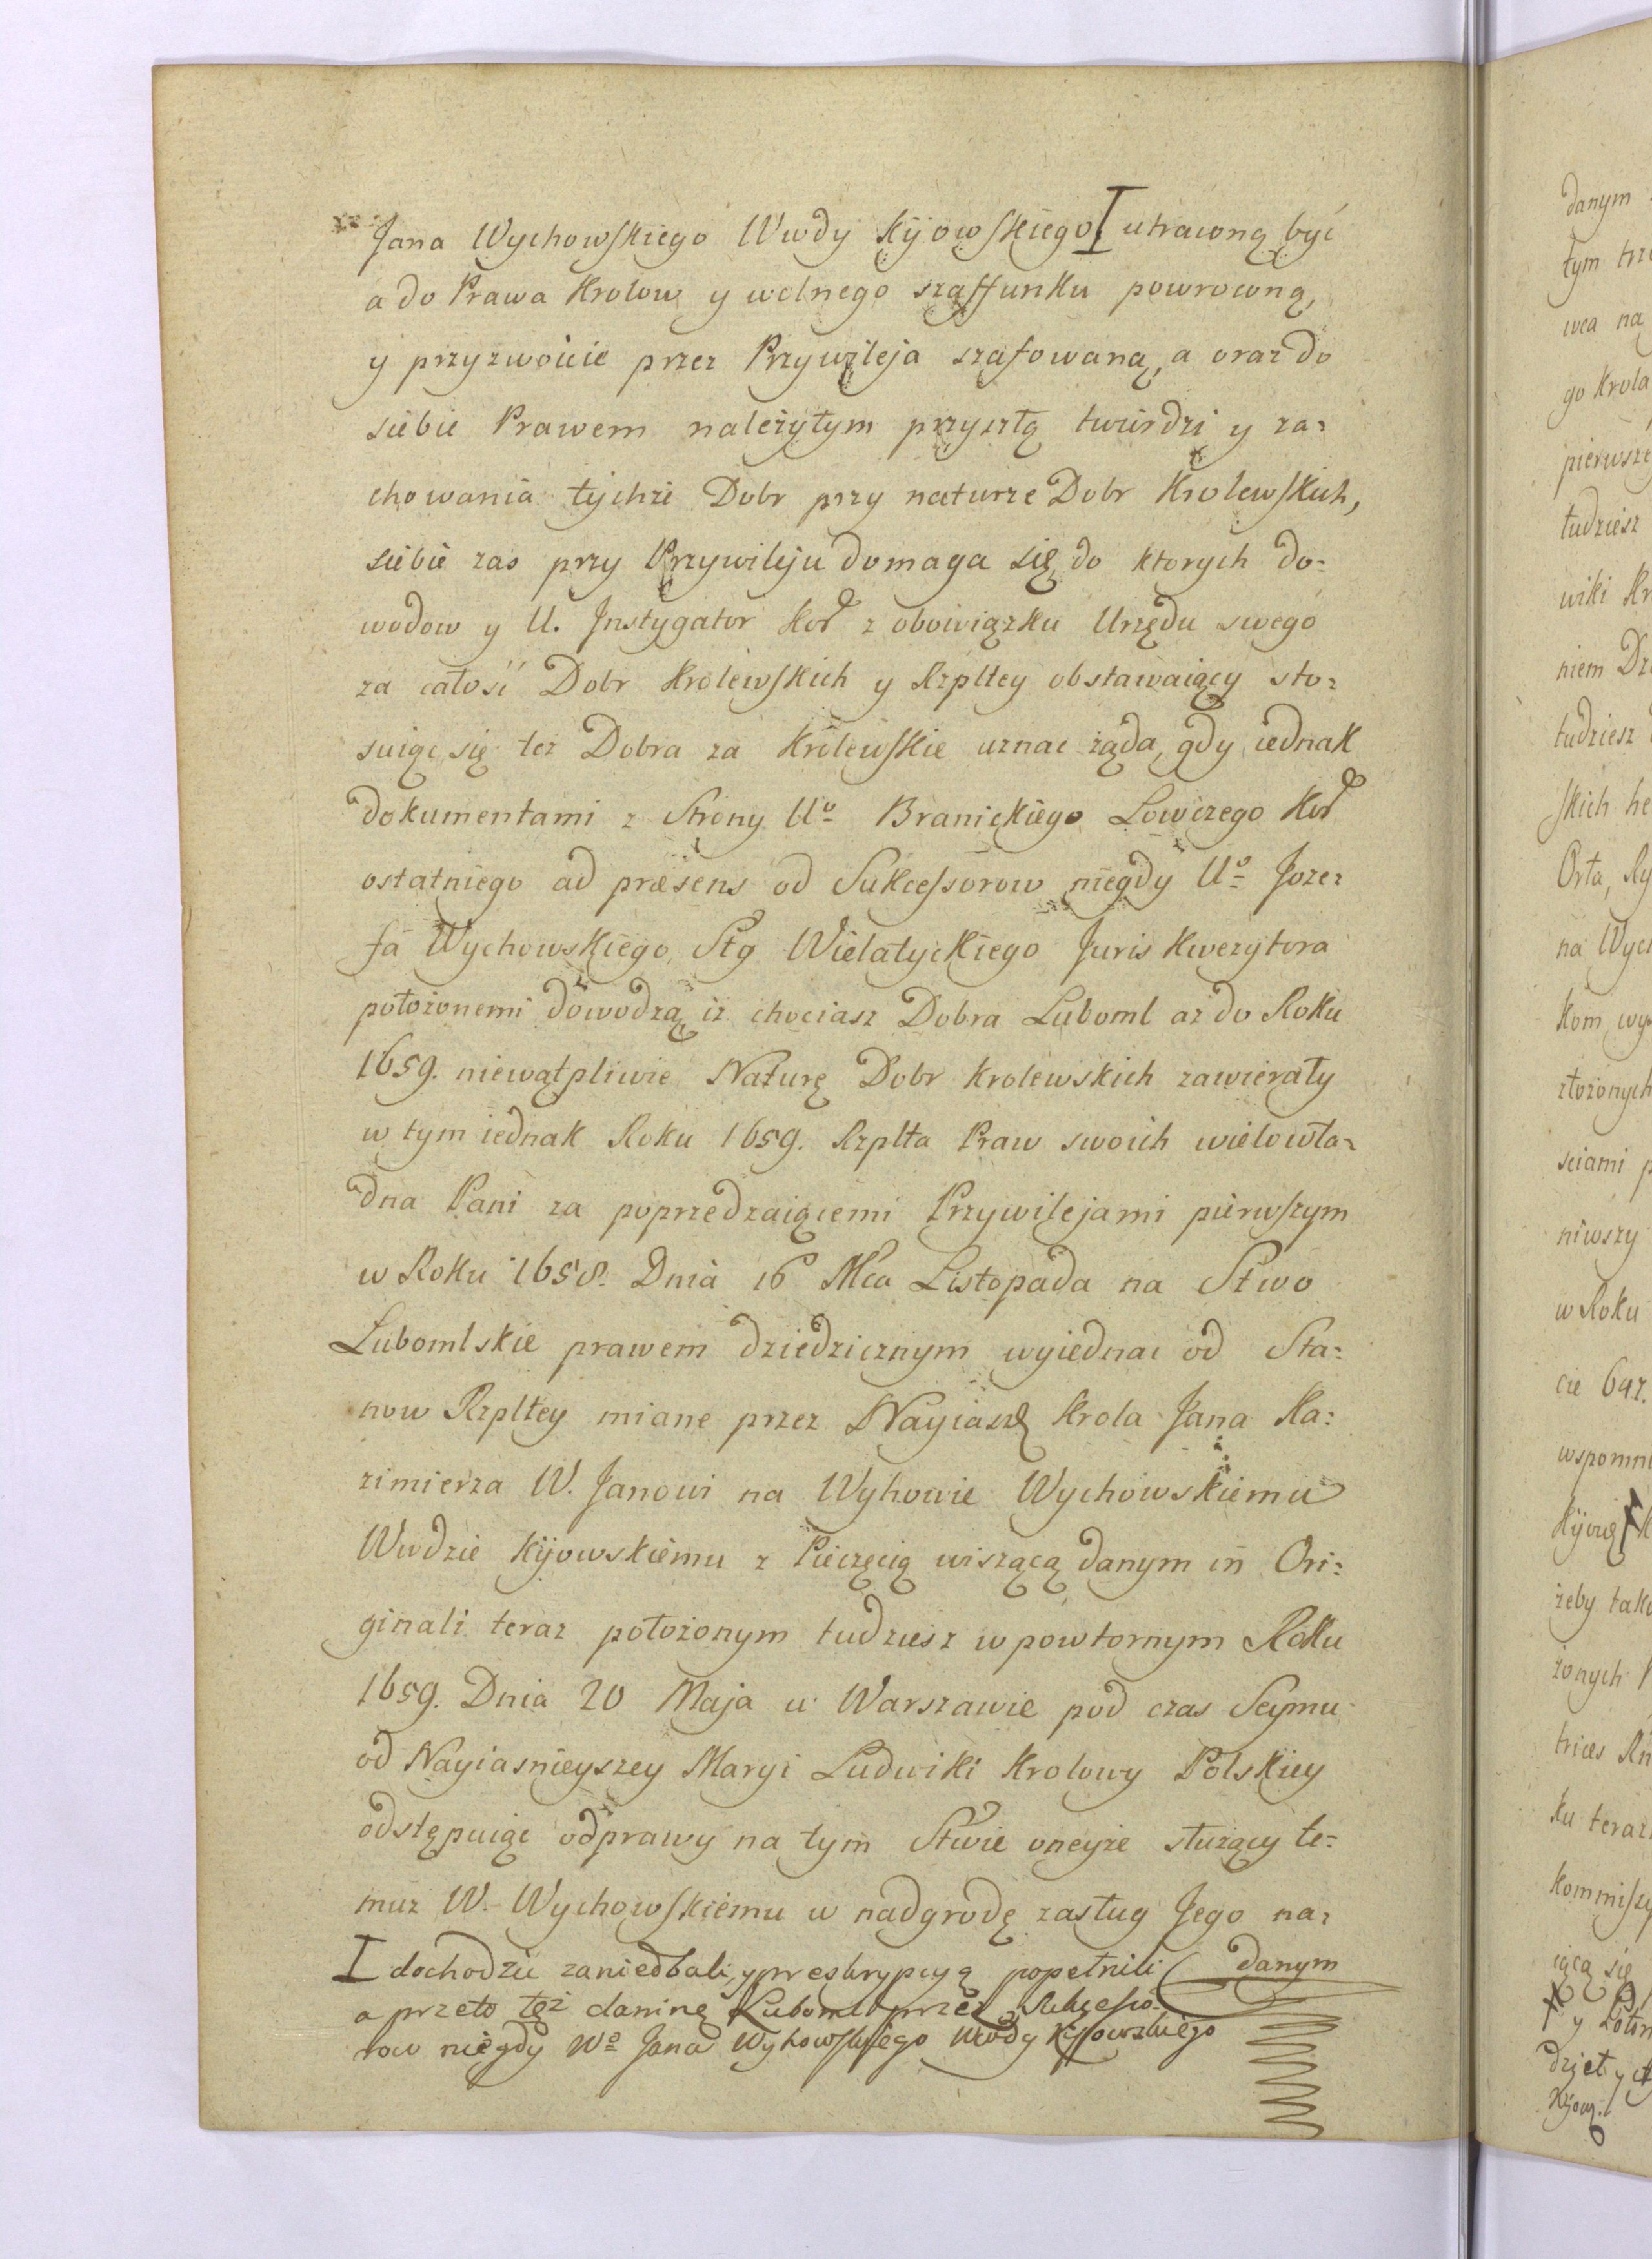 Jana Wychowskiego Wwdy Kijowskiego I utraconą być
a do Prawa Krolow y wolnego szaffunku powroconą,
y przyzwoicie przez Przywileja szafowaną, a oraz do
siebie Prawem należytym przyszłą twierdzi y za=
chowania tychże Dobr przy naturze Dobr Krolewskich,
siebie zas przy Przywileju domaga się, do ktorych do=
wodow y U. Instygator Kor z obowiązku Urzędu swego
za całość Dobr Krolewskich y Rzpltey obstawaiący sto=
suiąc się też Dobra za Krolewskie uznac żąda, gdy iednak
dokumentami z Strony Uo Branickiego Łowczego Kor
ostatniego ad præsens od Sukcessorow niegdy Uo Joze=
fa Wychowskiego Stg Wielatyckiego Juris Kwezytora
położonemi dowodzą iż chociasz Dobra Luboml az do Roku
1659. niewątpliwie Naturę Dobr Krolewskich zawierały
w tym iednak Roku 1659. Rzplta Praw swoich wielowła=
dna Pani za poprzedzaiącemi Przywilejami pierwszym
w Roku 1658. Dnia 16 Mca Listopada na Stwo
Lubomlskie prawem dziedzicznym wyiednac od Sta=
now Rzpltey miane przez Nayiasz Krola Jana Ka=
zimierza W. Janowi na Wyhowie Wychowskiemu
Wwdzie Kijowskiemu z Pieczęcią wiszącą danym in Ori=
ginali teraz położonym tudziesz w powtornym Roku
1659. Dnia 20 Maja w Warszawie pod czas Seymu
od Nayiasnieyszey Maryi Ludwiki Krolowy Polskiey
odstępuiąc odprawy na tym Stwie oneyże służący te=
muz W. Wychowskiemu w nadgrodę zasług Jego na=
danym
I dochodzic zaniedbali, y preskrypcyą popełnili
a przeto tęż daninę Luboml przez Sukcesso=
row niegdy Wo Jana Wyhowskiego Wwdy Kijowskiego
danym
tym
wca na
go Krola
tudziesz
wiki
niem
tudziesz
skich
Orła,
na
kom
złożonych
sciami
w Roku
cie
żeby
żonych
ku teraz
iącą się